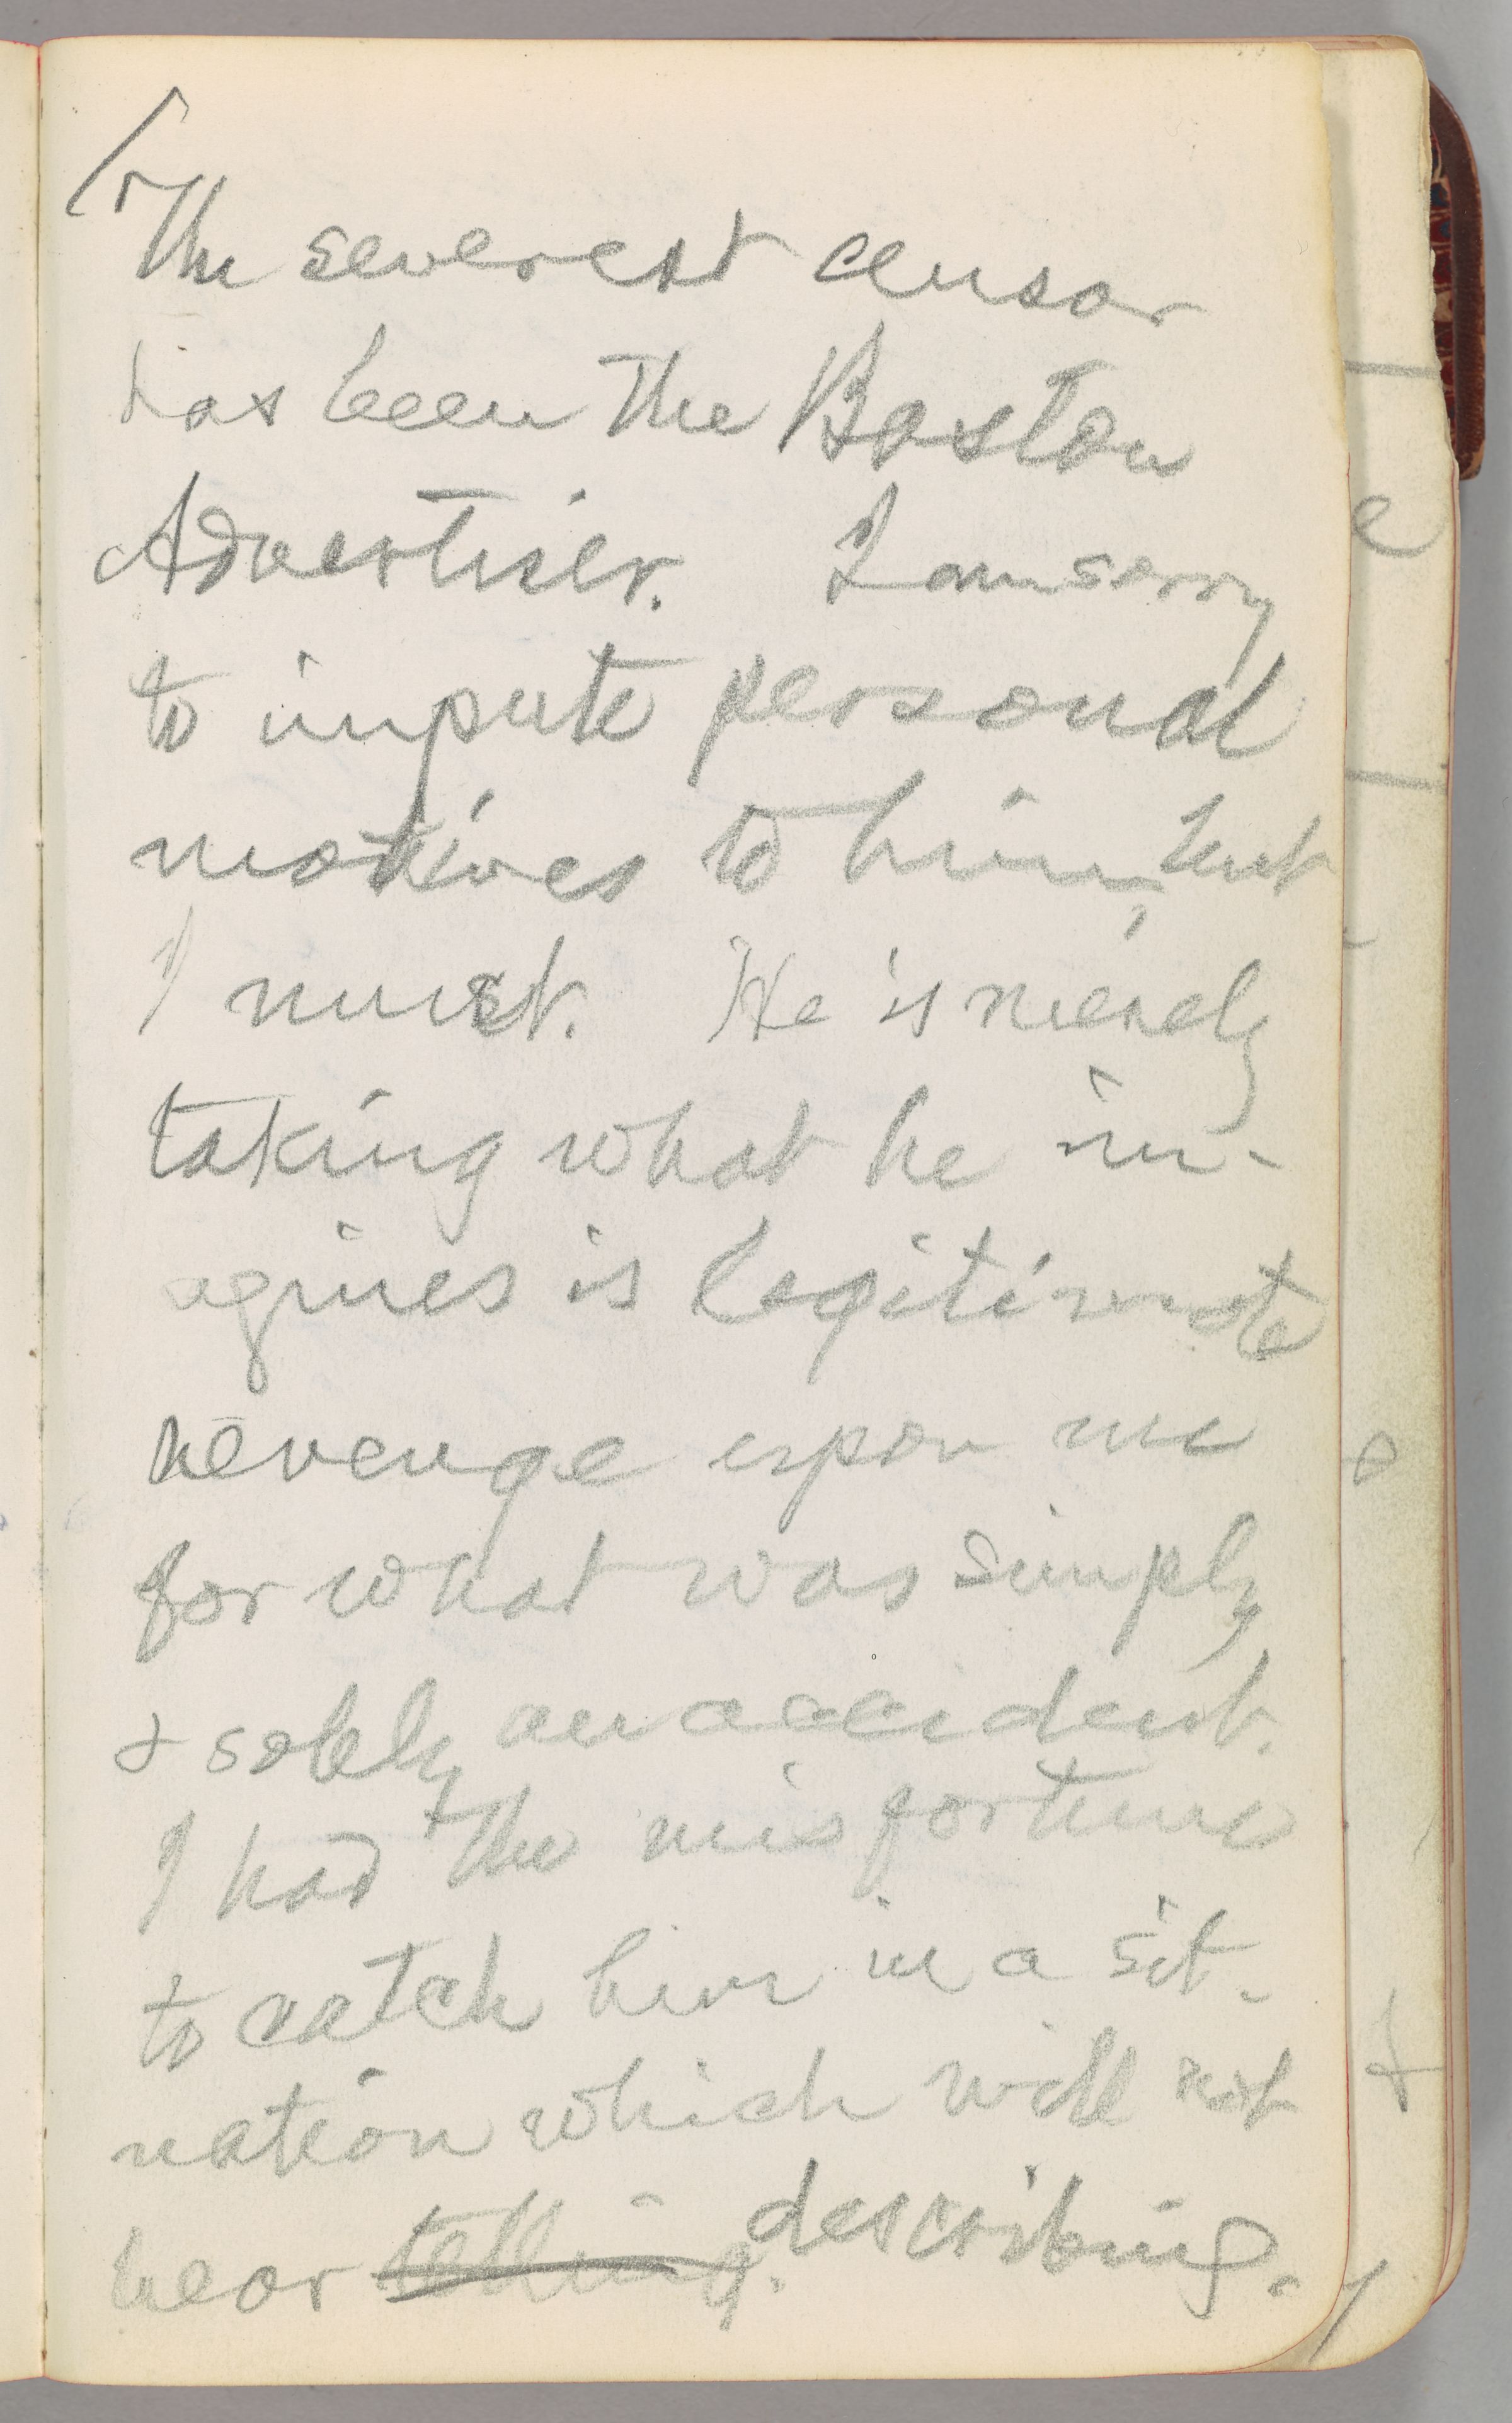 The severest censor
has been the Boston
Advertiser. I am sorry
to impute personal
motives to him, but
I must. He is merely
taking what he im-
agines is legitimate
revenge upon me
for what was simply
& solely an accident.
I had the misfortune
to catch him in a sit-
uation which will not
bear telling. describing.